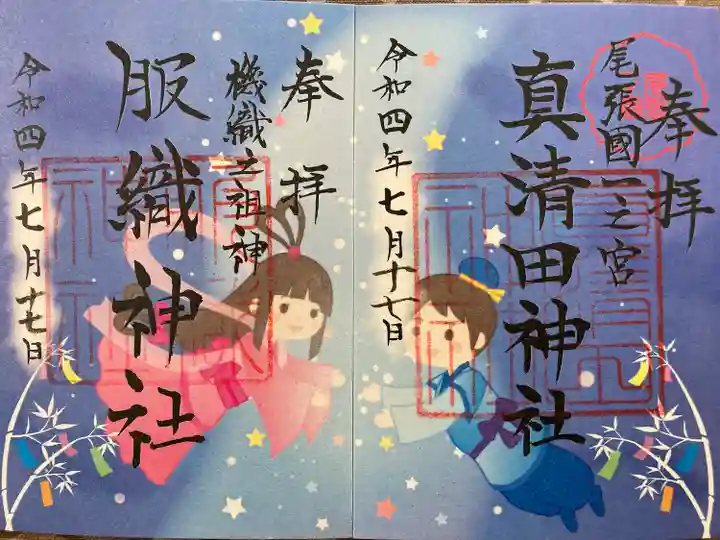 奉拝
尾張國一之宮
真清田神社
令和四年七月十七日
奉拝
機織之祖神
服織神社
令和四年七月十七日